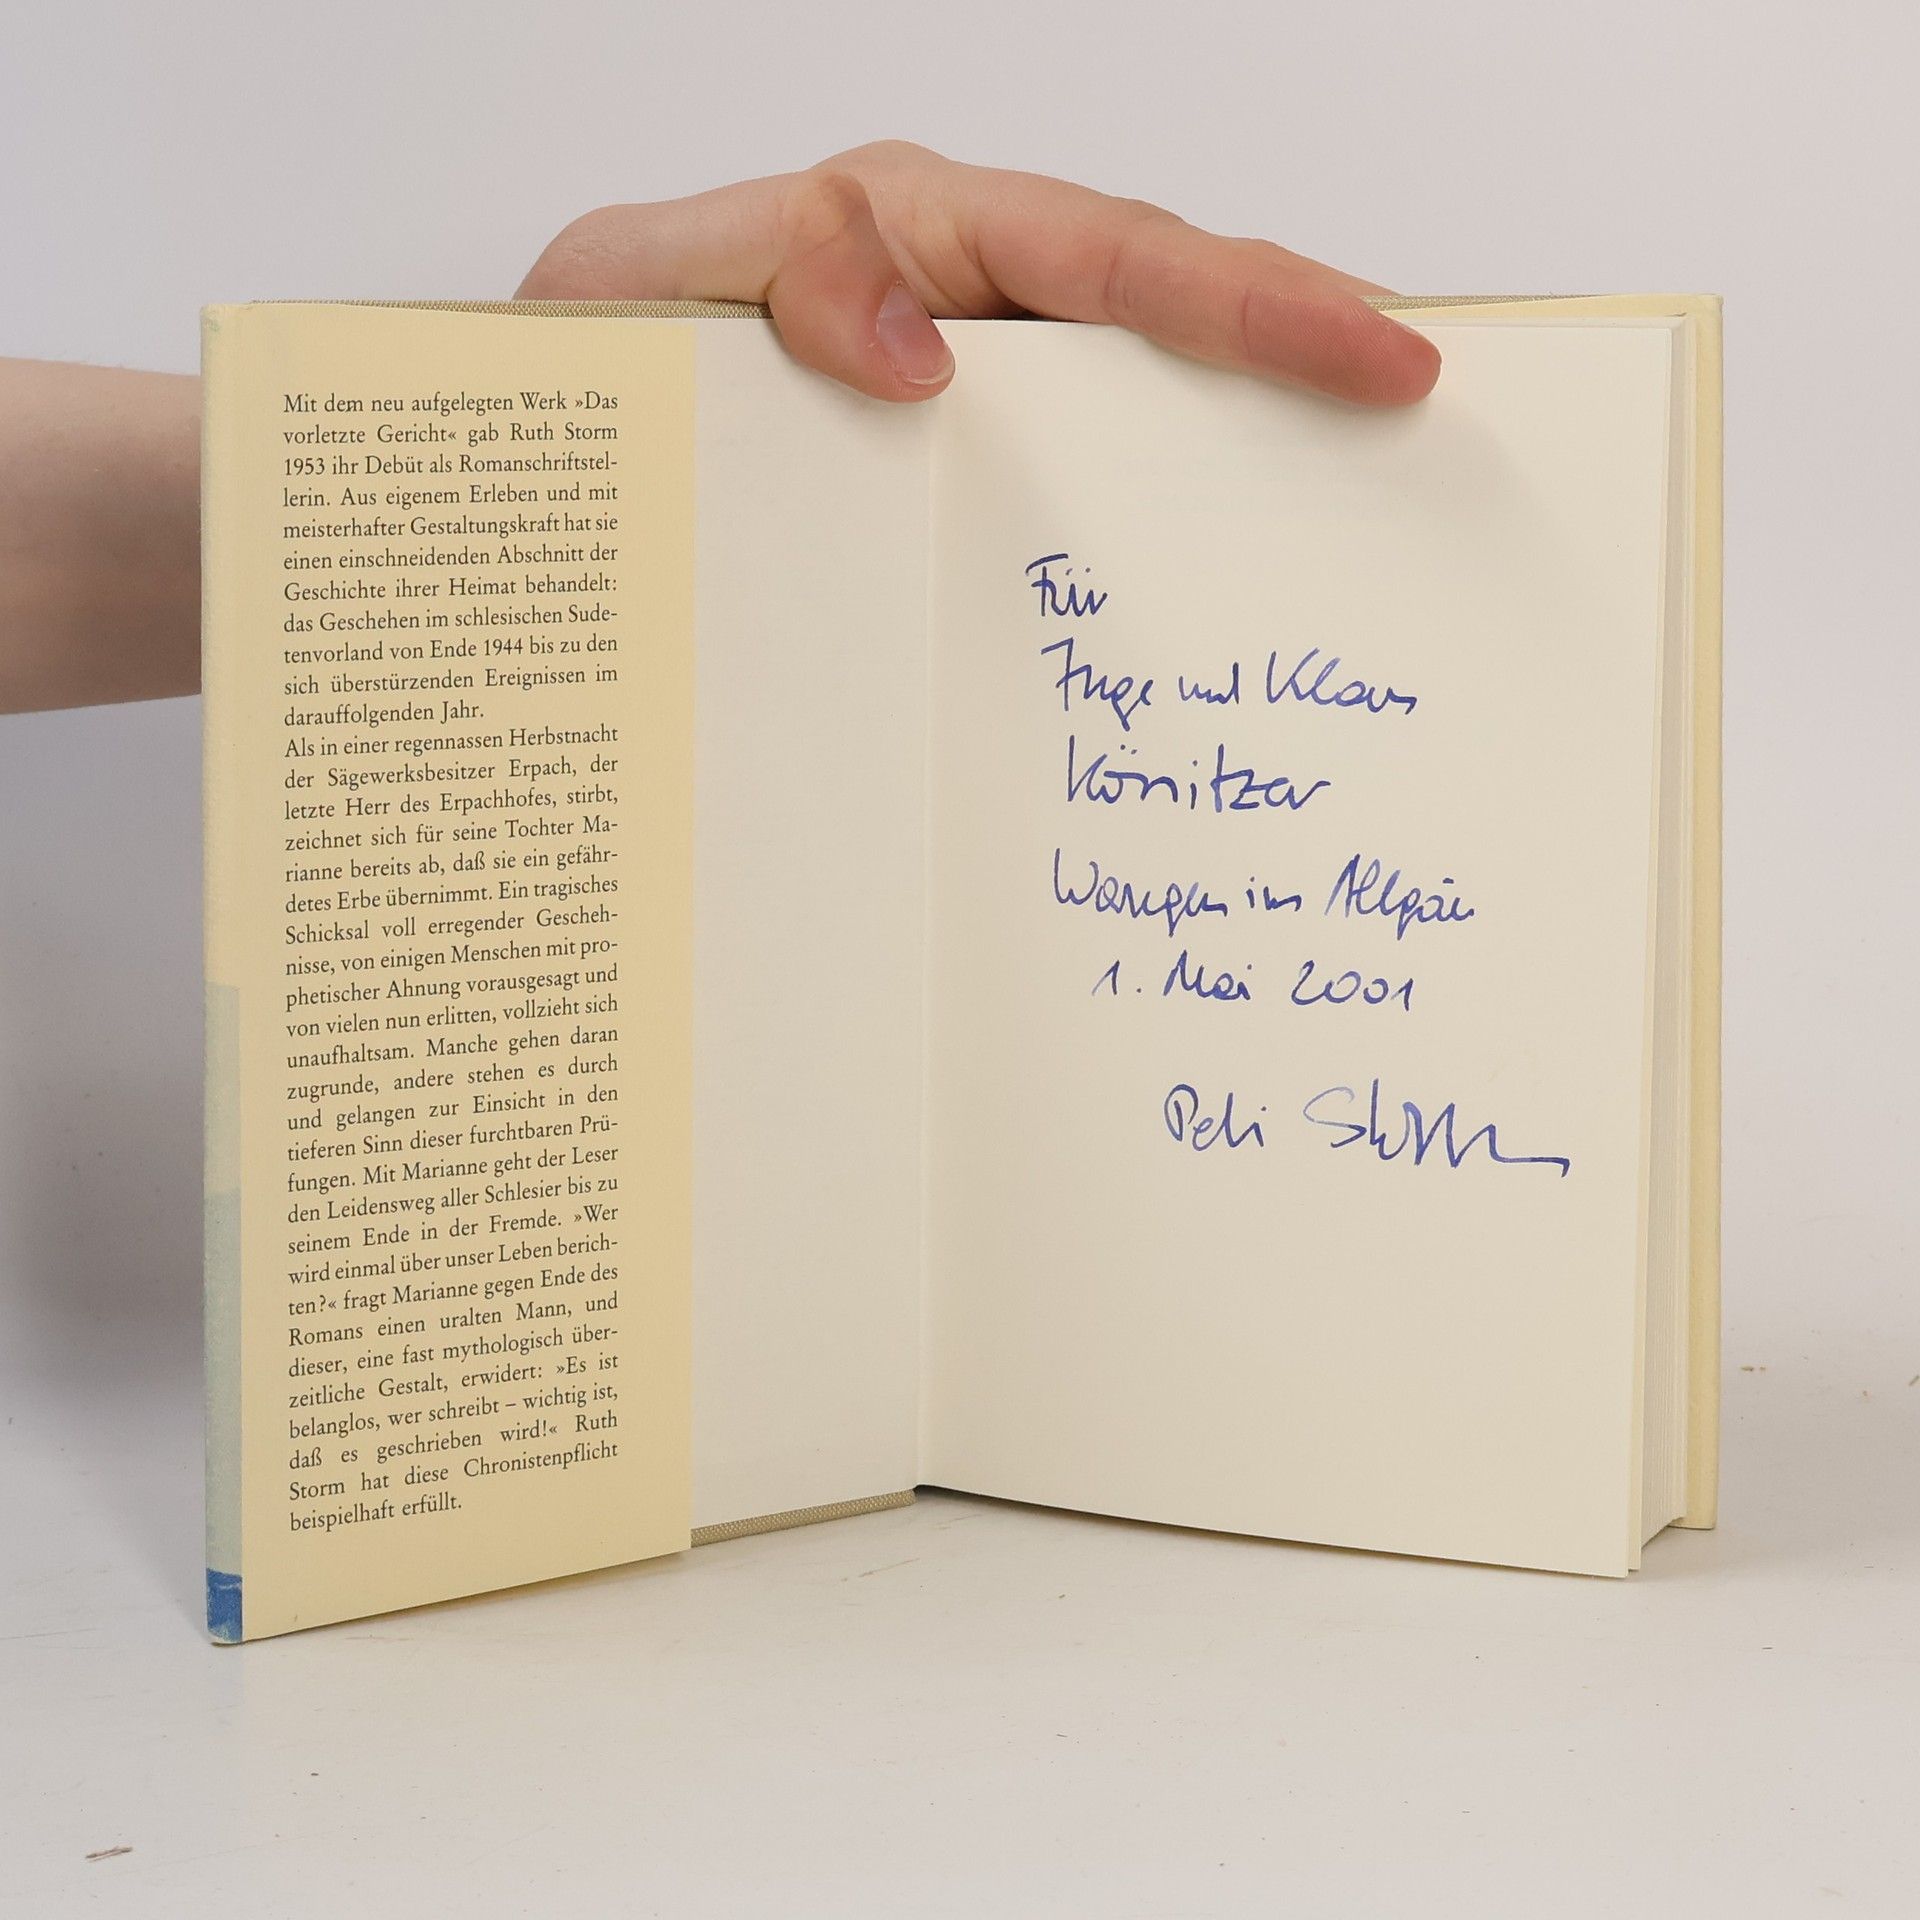 Mit dem neu aufgelegten Werk »Das
vorletzte Gericht« gab Ruth Storm
1953 ihr Debüt als Romanschriftstel-
lerin. Aus eigenem Erleben und mit
meisterhafter Gestaltungskraft hat sie
einen einschneidenden Abschnitt der
Geschichte ihrer Heimat behandelt:
das Geschehen im schlesischen Sude-
tenvorland von Ende 1944 bis zu den
sich überstürzenden Ereignissen im
darauffolgenden Jahr.
Als in einer regennassen Herbstnacht
der Sägewerksbesitzer Erpach, der
letzte Herr des Erpachhofes, stirbt,
zeichnet sich für seine Tochter Ma-
rianne bereits ab, daß sie ein gefähr-
detes Erbe übernimmt. Ein tragisches
Schicksal voll erregender Gescheh-
nisse, von einigen Menschen mit pro-
phetischer Ahnung vorausgesagt und
von vielen nun erlitten, vollzieht sich
unaufhaltsam. Manche gehen daran
zugrunde, andere stehen es durch
und gelangen zur Einsicht in den
tieferen Sinn dieser furchtbaren Prü-
fungen. Mit Marianne geht der Leser
den Leidensweg aller Schlesier bis zu
seinem Ende in der Fremde. »Wer
wird einmal über unser Leben berich-
ten?« fragt Marianne gegen Ende des
Romans einen uralten Mann, und
dieser, eine fast mythologisch über-
zeitliche Gestalt, erwidert: »Es ist
belanglos, wer schreibt – wichtig ist,
daß es geschrieben wird!« Ruth
Storm hat diese Chronistenpflicht
beispielhaft erfüllt.
Für
Inge und Klaus
Könitzer
Wangen im Allgäu
1. Mai 2001